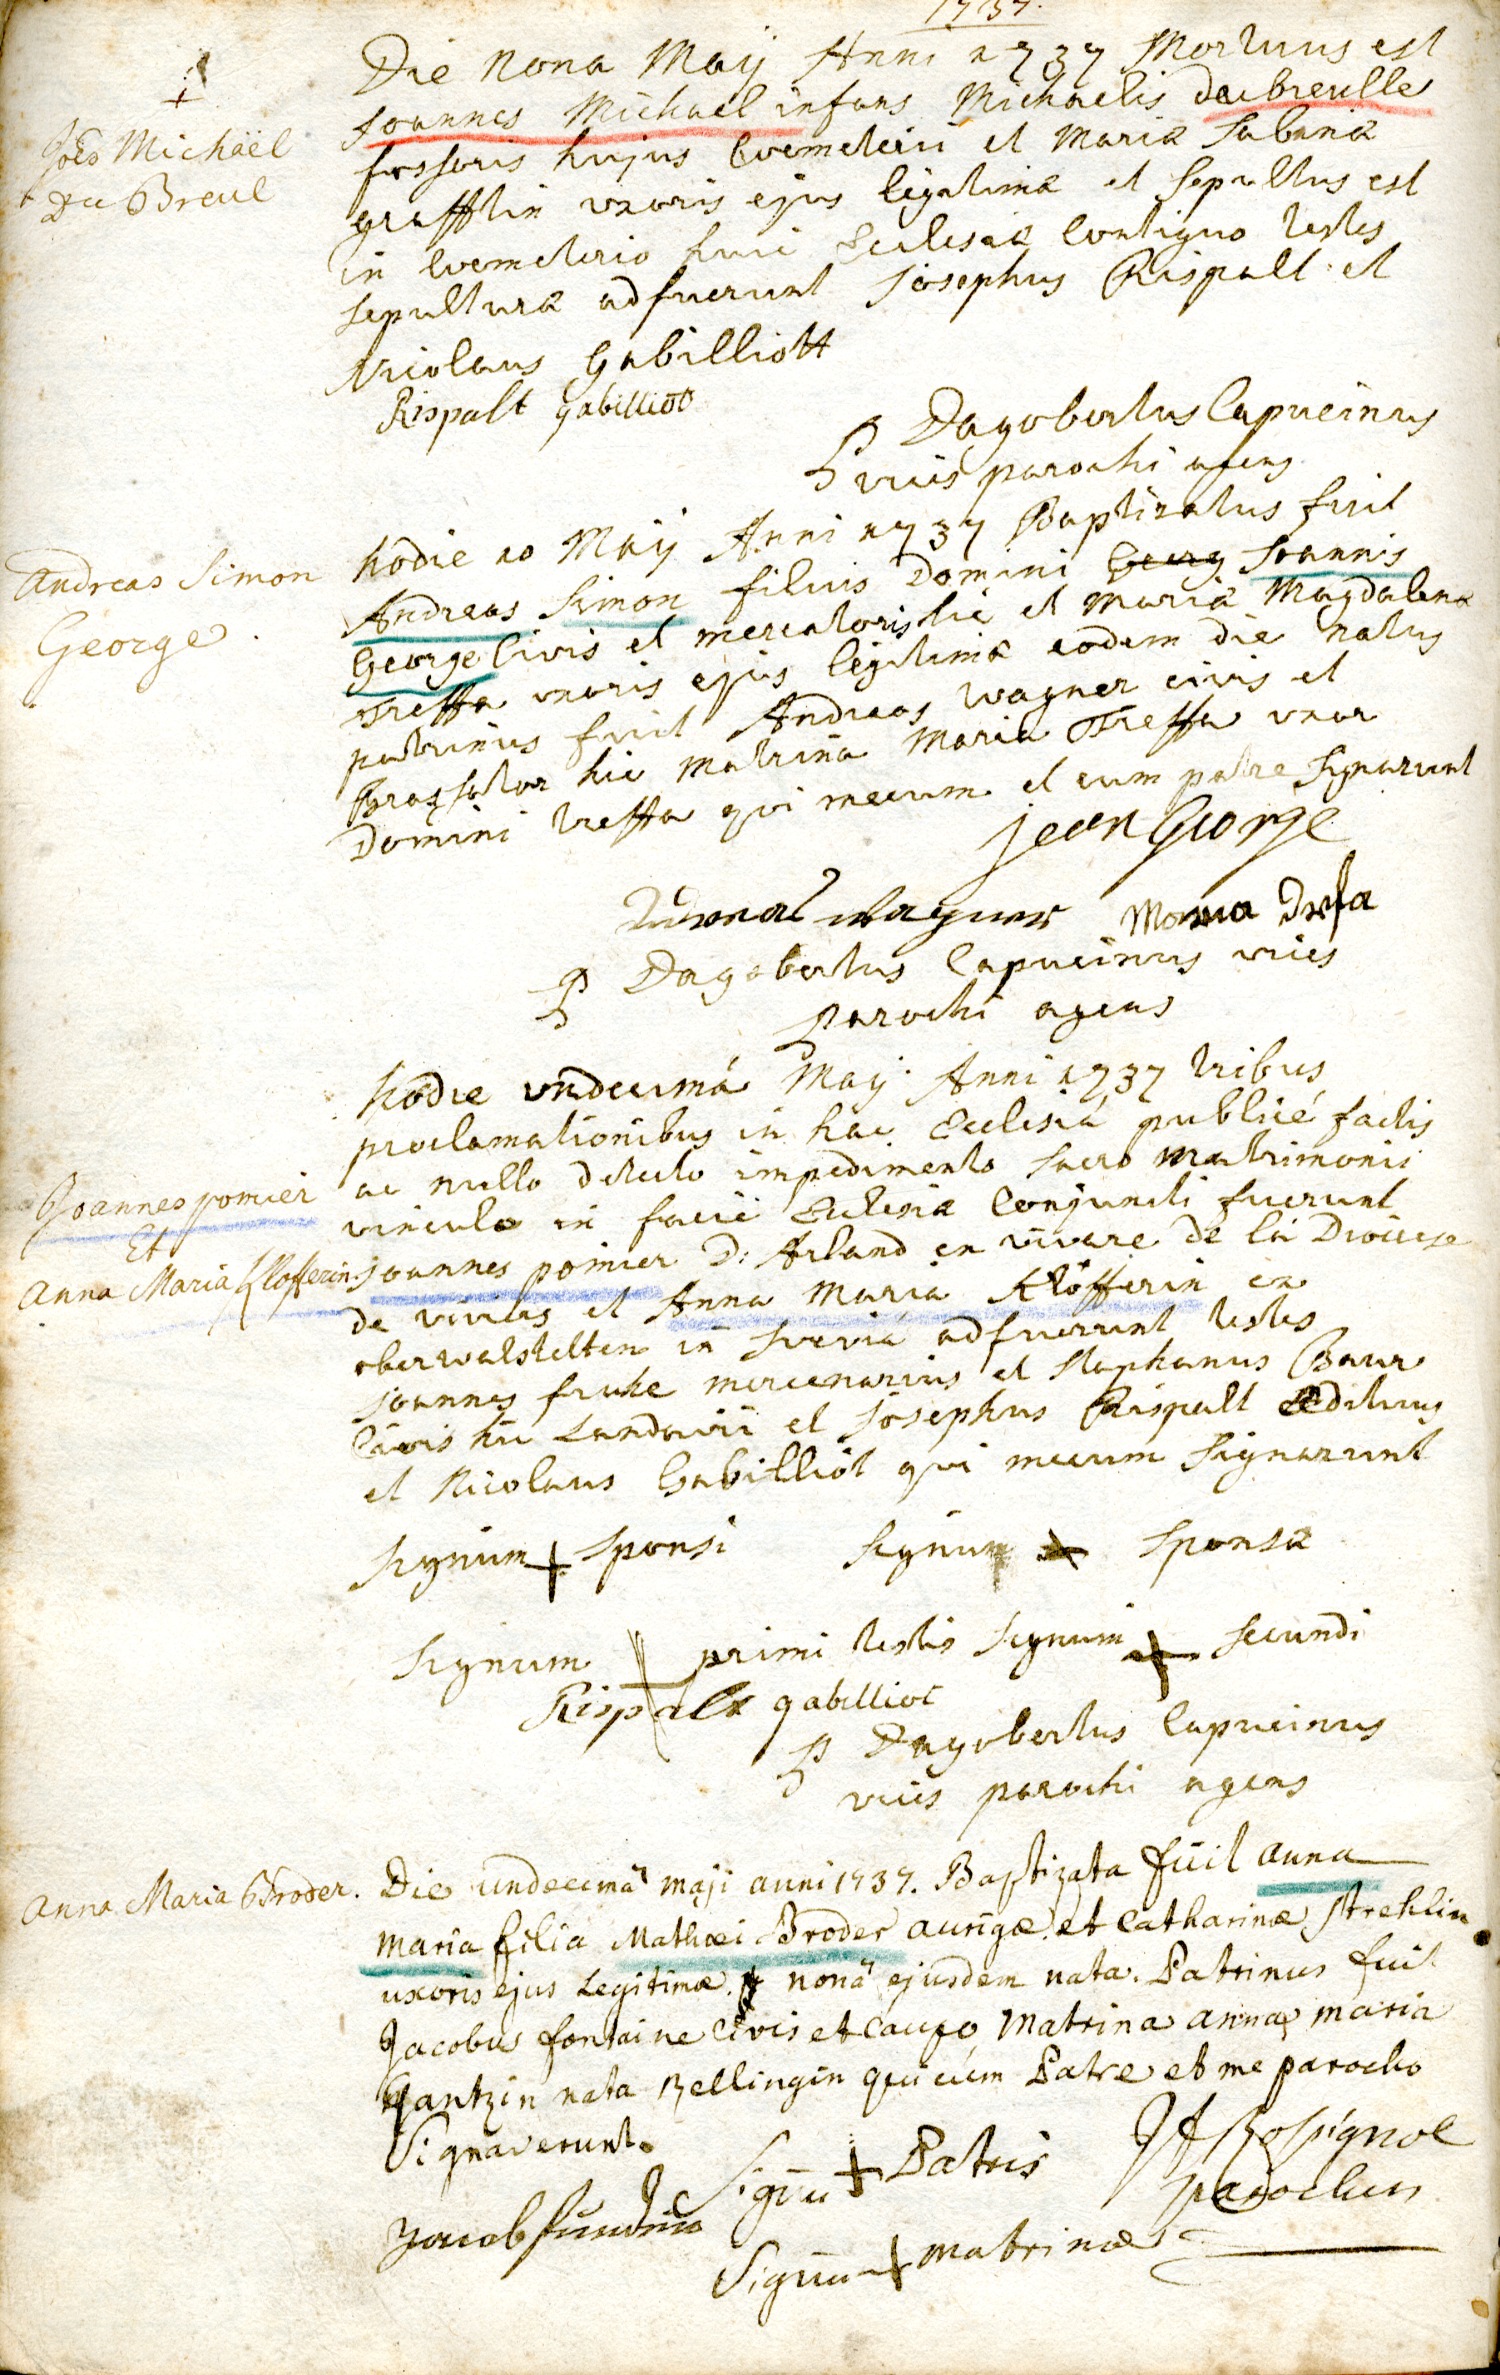 1737.
Die Nona Maÿ Anni 1737 Mortuus est
Joannes Michael infans Michaelis deubreulle
fossoris hujus Coemeterii et Mariæ Sabinæ
grafftin uxoris ejus legitimæ et Sepultus est
in Coemeterio huic Ecclesiæ Contiguo testes
sepulturæ adfuerunt Josephus Rispalt et
Nicolaus Gabilliott
Rispalt gabilliot
P Dagobertus Capucinus
vices parochi agens
Joes Michaël
Du Breul
hodie 10 Maÿ Anni 1737 Baptizatus fuit
Andreas Simon filius Domini Georg Joannis
George Civis et mercatoris hic et Mariæ Magdalenæ
Treffa uxoris ejus legitimæ eodem die natus
patrinus fuit Andreas Wagner civis et
Braxator hic Matrina Maria Treffa uxor
Domini treffa qui mecum et cum patre signarunt
Andreas Simon
George
jean George
Andreas Wagner Maria Drefa
P Dagobertus Capucinus vices
parochi agens
hodie undecimá Maÿ Anni 1737 tribus
proclamationibus in hac Ecclesiá publicé factis
ac nullo detecto impedimento sacro Matrimonii
vinculo in facie Ecclesiæ Conjuncti fuerunt
joannes pomier D: Arland en vivare de la Diocese
de vivies et Anna Maria Klöfferin ex
oberwalstetten in Sueviá adfuerunt testes
joannes fruhe mercenarius et Stephanus Baur
Civis hic Landavii et Josephus Rispalt Ædituus
et Nicolaus Gabilliot qui mecum signarunt
Joannes pomier
Et
Anna Maria Klofferin
Signum + Sponsi Signum + Sponsæ
Signum + primi testis Signum + secundi
Rispalt gabilliot
P Dagobertus Capucinus
vices parochi agens
Anna Maria Broder.
Die undecimâ maji anni 1737. Baptizata fuit anna
maria filia Mathæi Broder aurigæ et Catharinæ strehlin
uxoris ejus Legitimæ. nonâ ejusdem nata. Patrinus fuit
Jacobus fontaine Civis et Caupo Matrina anna maria
Gantzin nata Zellingin qui cum Patre et me parocho
Signaverunt.
Signu + Patris
Rosignol
parochus
Signu + matrinæ